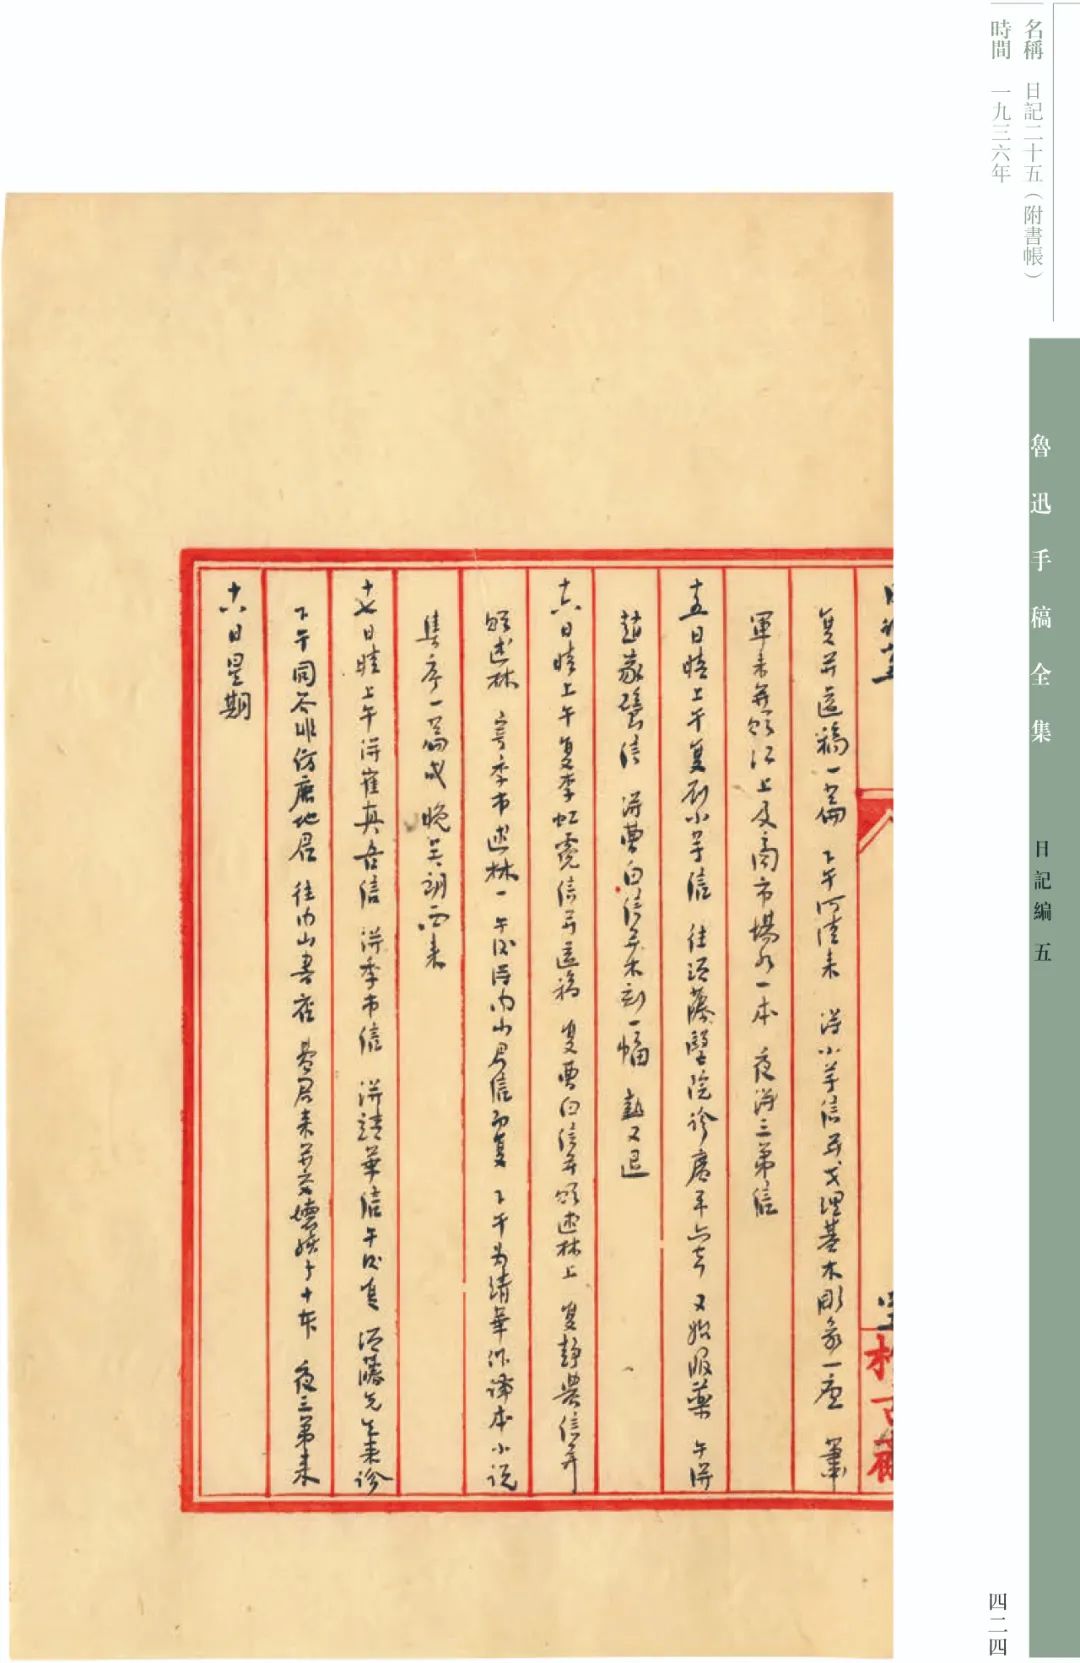 名稱　日記二十五（附書帳）
時間　一九三六年
魯迅手稿全集
日記編 五
复并還稿一篇 下午河清来 得小芋信并戈理基木彫象一座 蕭
軍来并贈江上及商市場各一本 夜得三弟信
十五日晴上午复刘小芋信 往須藤醫院診廣平亦去 又始服藥 午得
趙家璧信 得曹白信并木刻一幅 熱又退
十六日晴上午复李虹霓信并還稿 复曹白信并贈述林上 复静農信并
贈述林 寄季市述林一 午后得内山君信即复 下午为靖華作譯本小说
集序一篇成 晚吴朗西来
十七日晴上午得崔真吾信 得季市信 得靖華信午后复 須藤先生来診
下午同谷非訪鹿地君 往内山書店 費君来并交壞孩子十本 夜三弟来
十八日星期
四二四